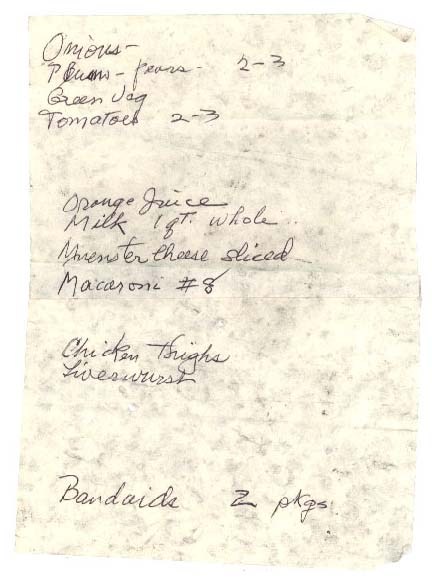 Onions-
Plums - pears - 2-3
Green Veg
Tomatoes 2-3
Orange Juice
Milk 1 qt. whole
Muenster Cheese sliced
Macaroni #8
Chicken Thighs
Liverwurst
Bandaids 2 pkgs.